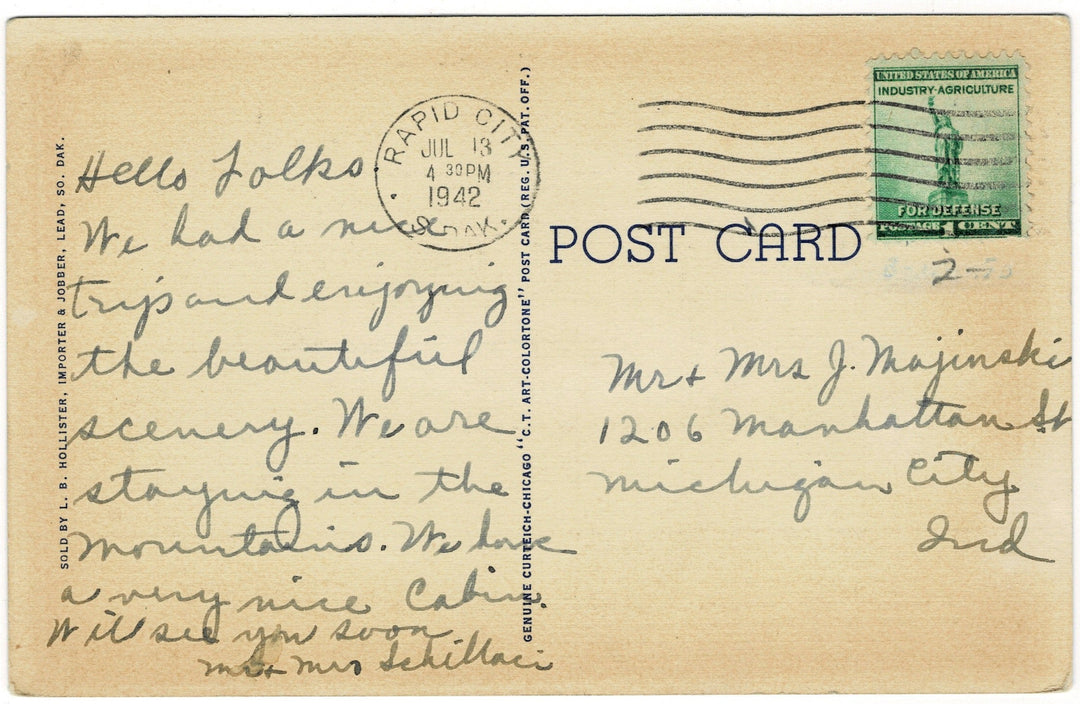 SOLD BY L. B. HOLLISTER, IMPORTER & JOBBER, LEAD, SO. DAK.
Hello Folks
We had a nice
trip and enjoying
the beautiful
scenery. We are
staying in the
mountains. We have
a very nice Cabin.
Will see you soon
Mr + Mrs Schillaci
RAPID CITY
JUL 13
4 30 PM
1942
S. DAK.
GENUINE CURTEICH-CHICAGO "C.T. ART-COLORTONE" POST CARD (REG. U.S. PAT. OFF.)
POST CARD
UNITED STATES OF AMERICA
INDUSTRY-AGRICULTURE
FOR DEFENSE
POSTAGE 1 CENT
2-
Mr + Mrs J. Majinski
1206 Manhattan St
Michigan City
Ind